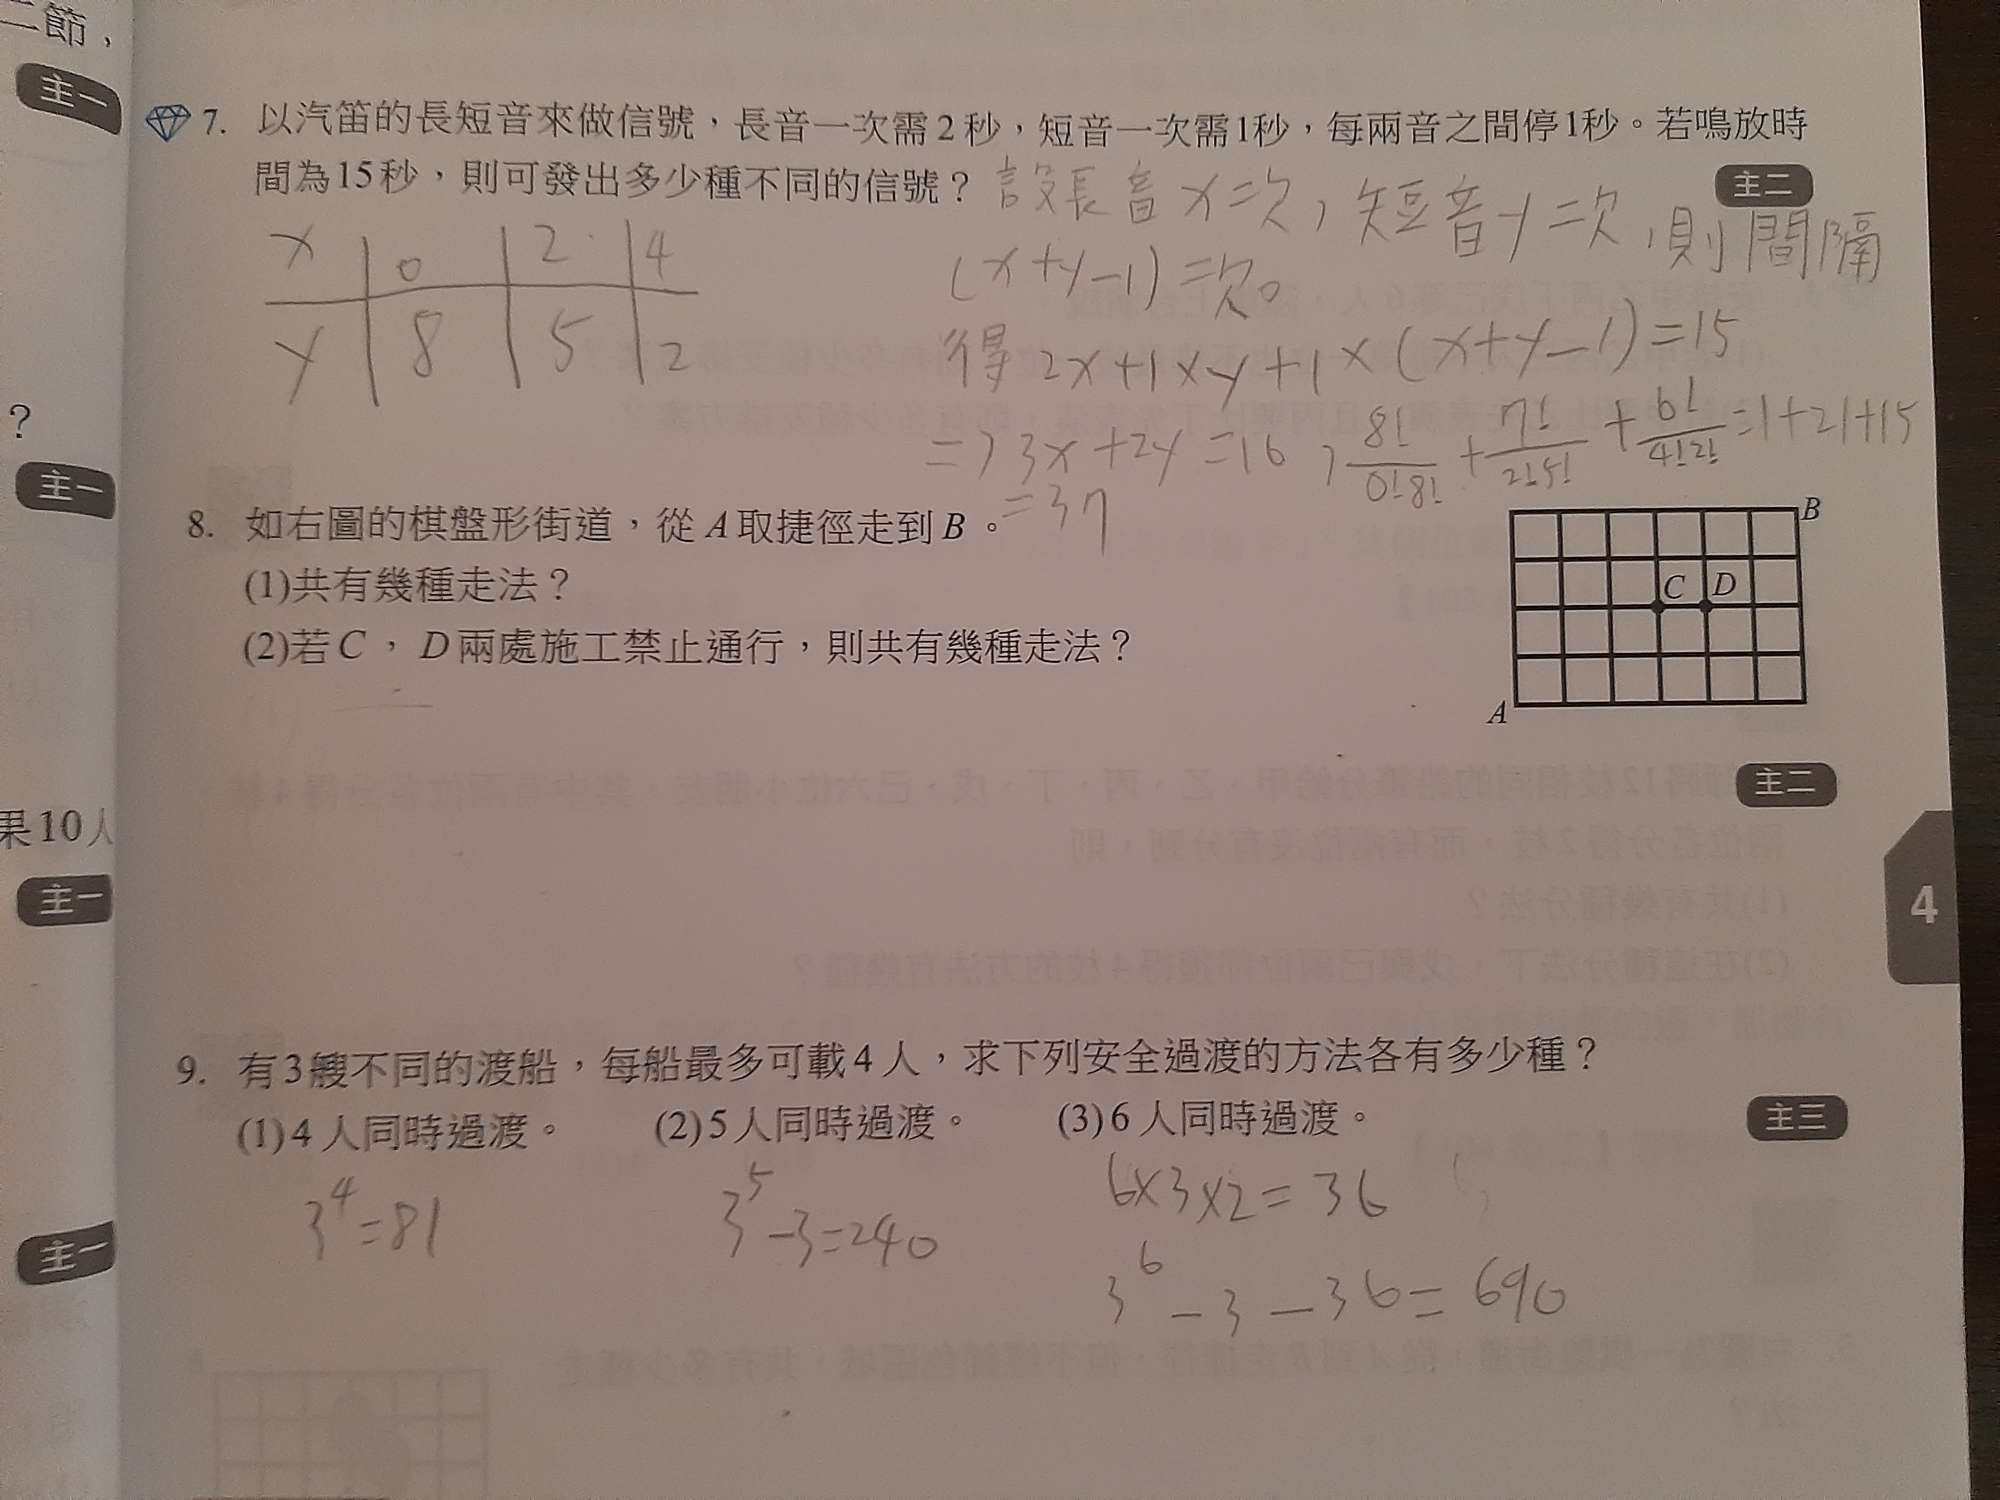 二節，
主一
7. 以汽笛的長短音來做信號，長音一次需2秒，短音一次需1秒，每兩音之間停1秒。若鳴放時
間為15秒，則可發出多少種不同的信號？
主二
設長音x二次，短音y二次，則間隔
(x+y-1)二次。
x 0 2 4
y 8 5 2
得 2x+1×y+1×(x+y-1)=15
=>3x+2y=16, 8!/0!8! + 7!/2!5! + 6!/4!2! =1+21+15
=37
?
主一
8. 如右圖的棋盤形街道，從A取捷徑走到B。
(1)共有幾種走法？
(2)若C，D兩處施工禁止通行，則共有幾種走法？
B
C D
A
主二
果10人
主一
4
9. 有3艘不同的渡船，每船最多可載4人，求下列安全過渡的方法各有多少種？
(1)4人同時過渡。 (2)5人同時過渡。 (3)6人同時過渡。
主三
3⁴=81
3⁵-3=240
6×3×2=36
3⁶-3-36=690
主一